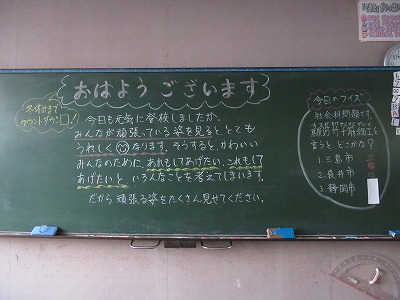 おはようございます
冬休みまで
カウントダウン□！
今日も元気に登校しましたか。
みんなが頑張っている姿を見ると、とても
うれしくなります。そうすると、かわいい
みんなのために、あれもしてあげたい、これもして
あげたいと、いろんなことを考えてしまいます。
だから、頑張る姿をたくさん見せてください。
今日のクイズ
社会科問題です。
駿河竹千筋細工と
言うと、どこかな？
1. 三島市
2. 袋井市
3. 静岡市